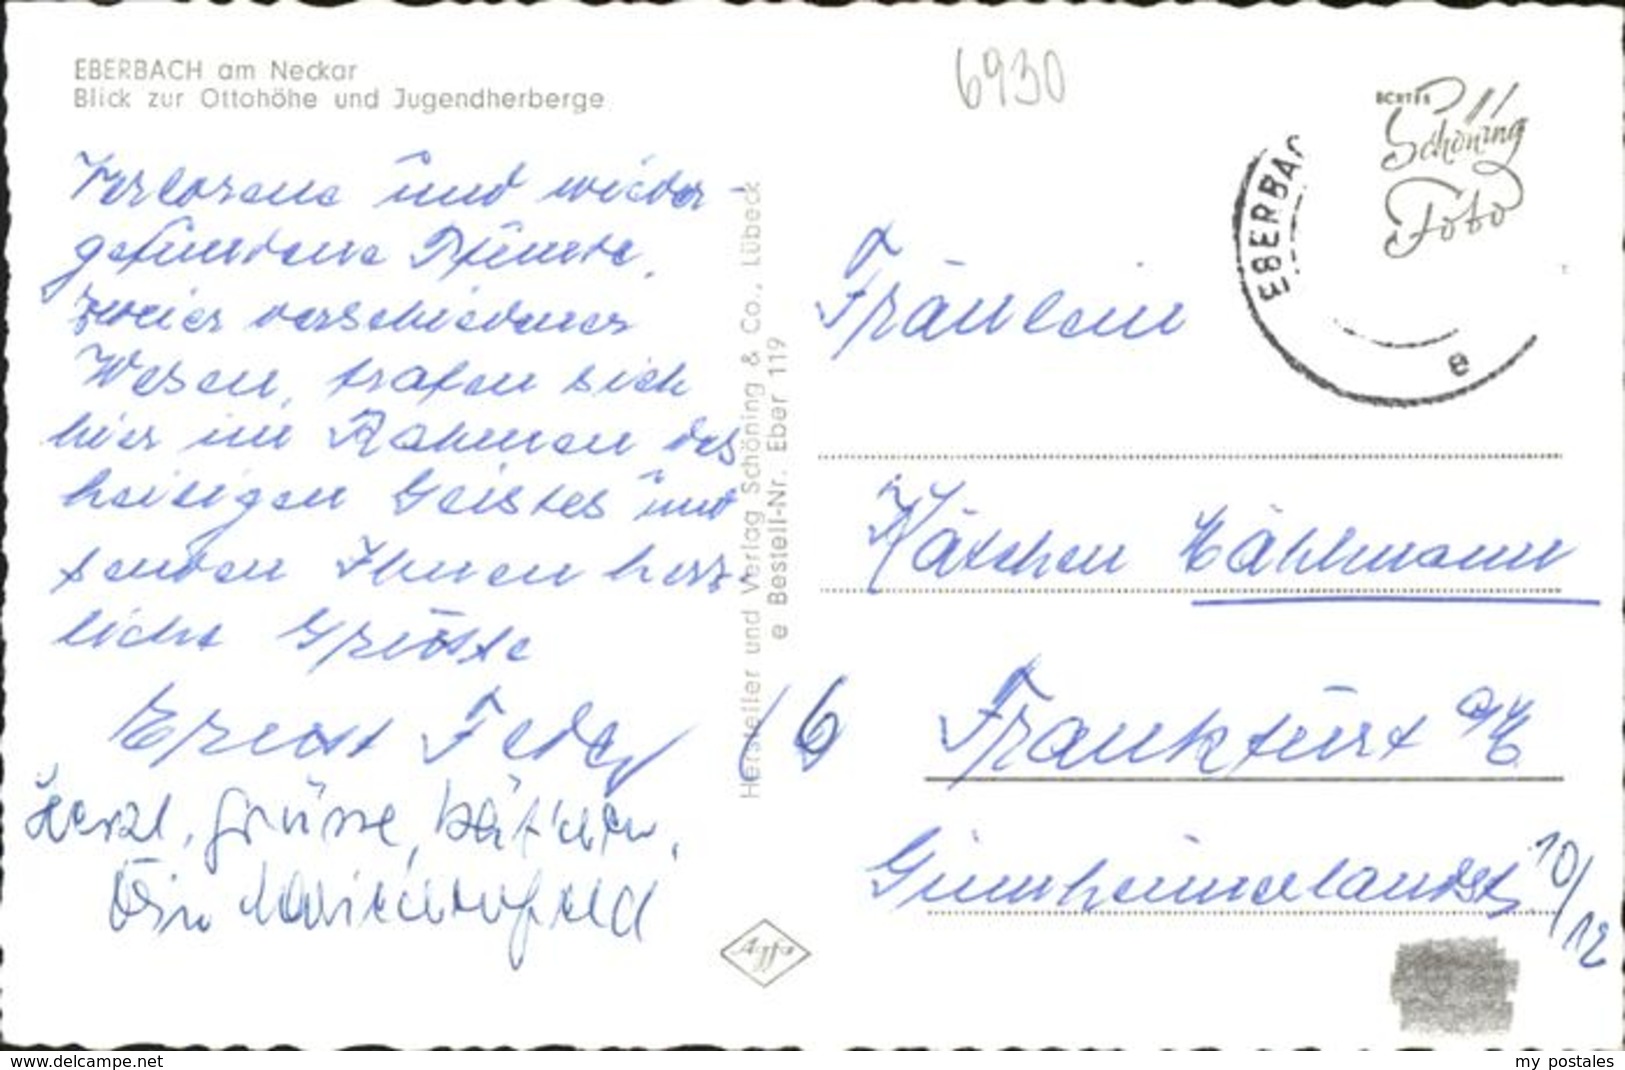 EBERBACH am Neckar
Blick zur Ottohöhe und Jugendherberge
6930
ECHTES
Schöning
Foto
EBERBAC
e
Verlorene und wieder-
gefundene Pfunde,
zweier verschiedener
Wesen, trafen sich
hier im Rahmen des
heiligen Geistes und
senden Ihnen herz-
liche Grüsse
Ernst
Herzl. Grüsse, Kätchen,
Hersteller und Verlag Schöning & Co., Lübeck
e Bestell-Nr. Eber 119
Agfa
Fräulein
Kätchen Hählmann
6 Frankfurt a/M
Ginnheimerlandst
10/12
www.delcampe.net
my_postales